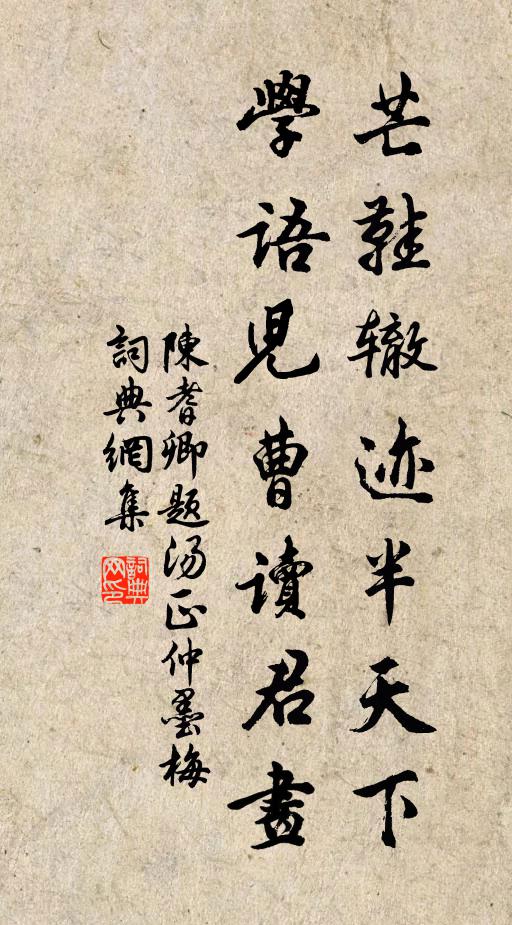 芒鞋辙迹半天下
學語兒曹讀君畫
陳耆卿题汤正仲墨梅
詞典網集
詞典网印